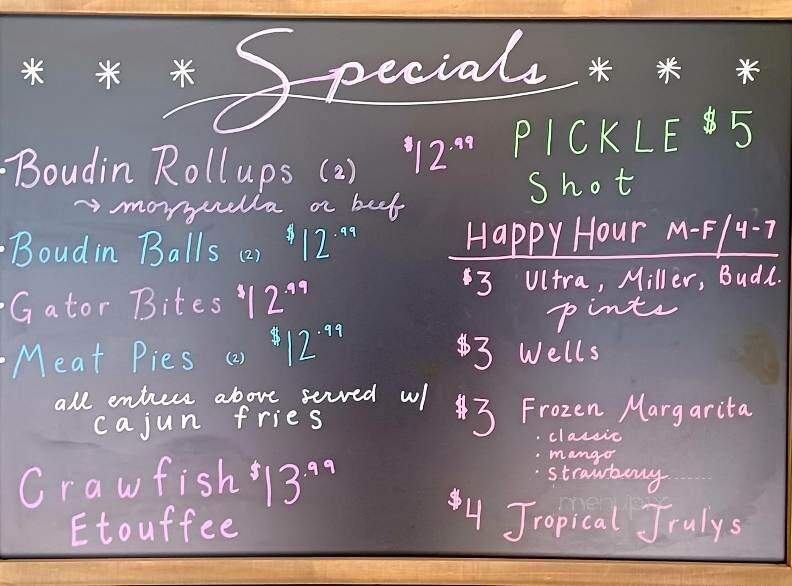 * * * Specials * * *
Boudin Rollups (2) $12.99
→ mozzerella or beef
Boudin Balls (2) $12.99
Gator Bites $12.99
Meat Pies (2) $12.99
all entrees above served w/
cajun fries
Crawfish $13.99
Etouffee
PICKLE $5
Shot
Happy Hour M-F/4-7
$3 Ultra, Miller, Budl.
pints
$3 Wells
$3 Frozen Margarita
· classic
· mango
· strawberry
menupix
$4 Tropical Trulys